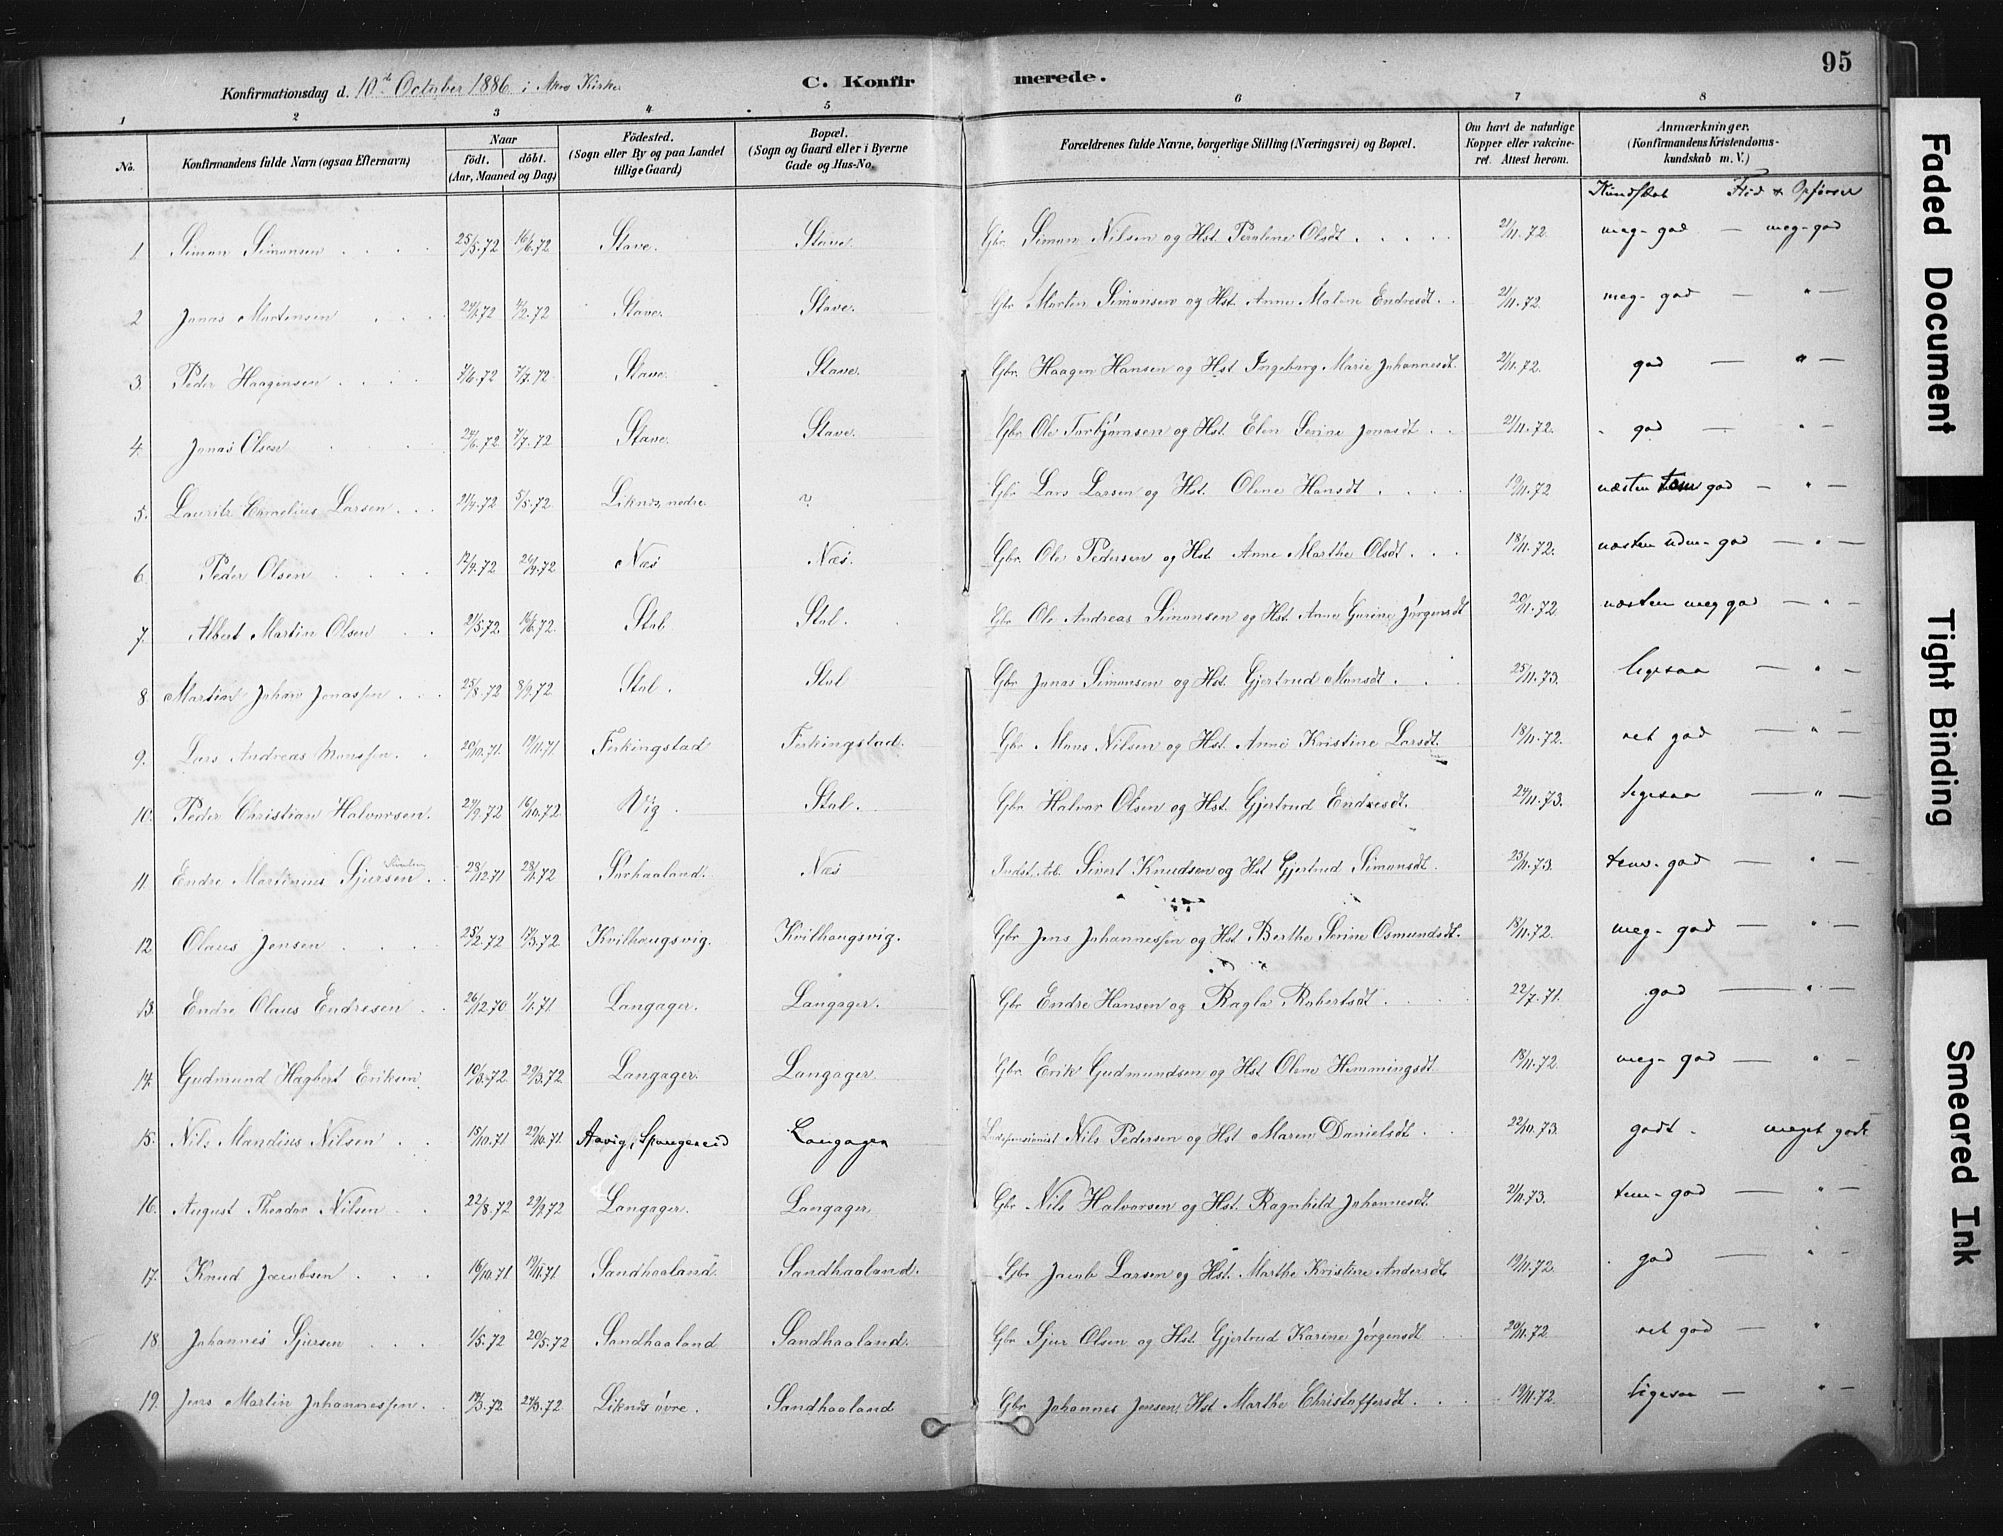 95
Konfirmationsdag d. 10de October 1886 i Akre Kirke C. Konfirmerede.
1 2 3 4 5 6 7 8
No. Konfirmandens fulde Navn (ogsaa Efternavn) Naar födt. döbt. (Aar, Maaned og Dag) Födested. (Sogn eller By og paa Landet tillige Gaard) Bopæl. (Sogn og Gaard eller i Byerne Gade og Hus-No. Forældrenes fulde Navne, borgerlige Stilling (Næringsvei) og Bopæl. Om havt de naturlige Kopper eller vakcineret. Attest herom. Anmærkninger. (Konfirmandens Kristendomskundskab m. V.)
Kundskab Flid & Opførsel
1 Simon Simonsen 25/5.72 16/6.72 Stave. Stave. Gbr. Simon Nilsen og Hst. Peroline Olsdt. 21/11.72. meg-god — meg-god
2 Jonas Martensen 24/1.72 4/2.72 Stave. Stave. Gbr. Marten Simonsen og Hst. Anne Malene Endresdt. 21/11.72. meg-god — " —
3. Peder Haagensen 7/6.72 7/7.72 Stave. Stave. Gbr. Haagen Hansen og Hst. Ingeborg Marie Johannesdt. 21/11.72. god — " —
4. Jonas Olsen 24/6.72 7/7.72 Stave. Stave. Gbr. Ole Torbjørnsen og Hst. Elen Serine Jonasdt. 21/11.72. god — " —
5. Lauritz Cornelius Larsen 21/4.72 5/5.72 Liknes, nedre ? Gbr. Lars Larsen og Hst. Olene Hansdt. 19/11.72 næsten tem god — " —
6. Peder Olsen 12/4.72 21/4.72 Næs Næs. Gbr. Ole Pedersen og Hst. Anne Marthe Olsdt. 18/11.72. næsten udm-god — " —
7. Albert Martin Olsen 21/5.72 16/6.72. Stol. Stol. Gbr. Ole Andreas Simonsen og Hst. Anne Gurine Jørgensdt 20/11.72. næsten meg god — " —
8. Martin Johan Jonassen 25/8.72 8/9.72 Stol. Stol Gbr. Jonas Simonsen og Hst. Gjertrud Monsdt. 25/11.73. ligesaa — " —
9. Lars Andreas Monssen 20/10.71. 19/11.71. Ferkingstad Ferkingstad. Gbr. Mons Nilsen og Hst. Anne Kristine Larsdt. 18/11.72. ret god — " —
10. Peder Christian Halvorsen. 27/9.72 16/10.72. Vig. Stol. Gbr. Halvor Olsen og Hst. Gjertrud Endresdt. 24/11.73. ligesaa — " —
11. Endre Martinius Sjursen 28/12.71 28/1.72 Sørhaaland. Næs Indst. Arb. Sivert Knudsen og Hst Gjertrud Simonsdt. 23/11.73. tem-god — " —
12. Olaus Jensen 25/2.72 17/3.72 Kvilhaugsvig. Kvilhaugsvig. Gbr Jens Johannessen og Hst Berthe Serine Osmundsdt. 18/11.72. meg-god — " —
13. Endre Olaus Endresen 26/12.70 1/1.71. Langager. Langager. Gbr. Endre Hansen og Ragla Robertsdt. 22/7.71. god — " —
14. Gudmund Hagbert Eriksen. 10/3.72 29/3.72 Langager. Langager. Gbr. Erik Gudmundsen og Hst Olene Hemmingsdt. 18/11.72. meg-god — " —
15. Nils Mandius Nilsen 15/10.71 29/10.71. Aavig, Spangereid Langager Nils Pedersen og Hst Maren Danielsdt. 22/10.73 godt. meget godt
16. August Theodor Nilsen 22/8.72 Langager. Langager Gbr Nils Halvorsen og Hst. Ragnhild Johannesdt. 21/11.73. tem-god — " —
17. Knud Jacobsen 16/10.71 19/11.71. Sandhaaland. Sandhaaland. Gbr Jacob Larsen og Hst. Marthe Kristine Andersdt. 19/11.72. god — " —
18. Johannes Sjursen 1/5.72 20/5.72 Sandhaaland Sandhaaland. Gbr Sjur Olsen og Hst. Gjertrud Karine Jørgensdt 20/11.72. ret god — "
19. Jens Martin Johannessen. 12/3.72 24/3.72 Liknes øvre. Sandhaaland Gbr. Johannes Jensen, Hst Marthe Christoffersdt. 19/11.72. ligesaa — " —
Faded Document
Tight Binding
Smeared Ink